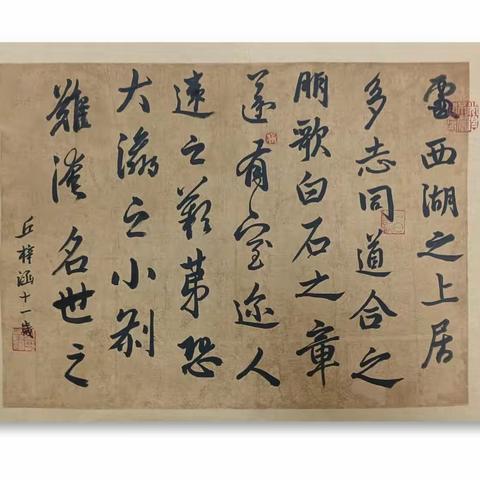 西湖之上居
多志同道合之
朋歌白石之章
遂有室迩人
遠之歎第恐
大瀛之小劫
難淹名世之
丘梓涵十一歲